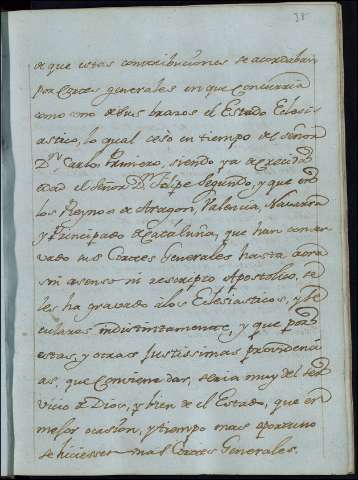 38
de que estas contribuciones se acordaban
por Cortes generales en que concurria
como uno de sus brazos el Estado Eclesi
astico, lo qual cesó en tiempo del señor
Dn. Carlos Primero, siendo ya de crecida
edad el señor Dn. Felipe Segundo, y que en
los Reynos de Aragon, Valencia, Navarra
y Principado de Cataluña, que han conser
vado sus Cortes Generales hasta aora
sin asenso ni rescripto Apostolico, se
les ha gravado a los Eclesiasticos, y Se
culares indistintamente, y que para
estas, y otras Justissimas providenci
as, que conviene dar, seria muy del ser
vicio de Dios, y bien de el Estado, que en
mejor ocasion, y tiempo mas oportuno
se hiciessen mas Cortes Generales.